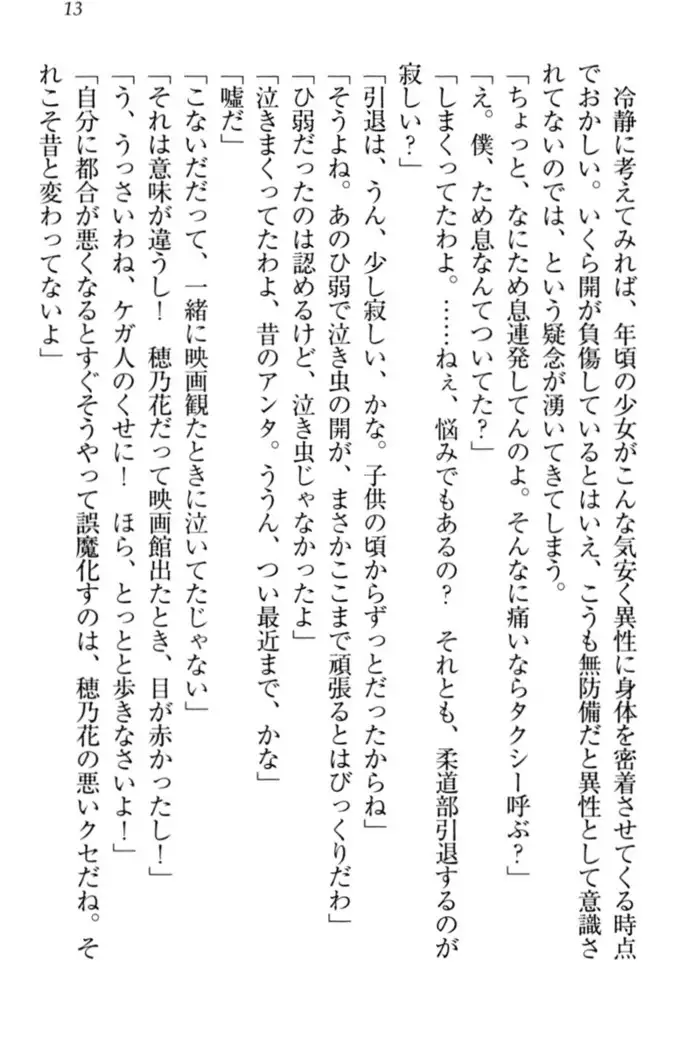 13
冷静に考えてみれば、年頃の少女がこんな気安く異性に身体を密着させてくる時点
でおかしい。いくら開が負傷しているとはいえ、こうも無防備だと異性として意識さ
れてないのでは、という疑念が湧いてきてしまう。
「ちょっと、なにため息連発してんのよ。そんなに痛いならタクシー呼ぶ？」
「え。僕、ため息なんてついてた？」
「しまくってたわよ。……ねぇ、悩みでもあるの？　それとも、柔道部引退するのが
寂しい？」
「引退は、うん、少し寂しい、かな。子供の頃からずっとだったからね」
「そうよね。あのひ弱で泣き虫の開が、まさかここまで頑張るとはびっくりだわ」
「ひ弱だったのは認めるけど、泣き虫じゃなかったよ」
「泣きまくってたわよ、昔のアンタ。ううん、つい最近まで、かな」
「嘘だ」
「こないだだって、一緒に映画観たときに泣いてたじゃない」
「それは意味が違うし！　穂乃花だって映画館出たとき、目が赤かったし！」
「う、うっさいわね、ケガ人のくせに！　ほら、とっとと歩きなさいよ！」
「自分に都合が悪くなるとすぐそうやって誤魔化すのは、穂乃花の悪いクセだね。そ
れこそ昔と変わってないよ」